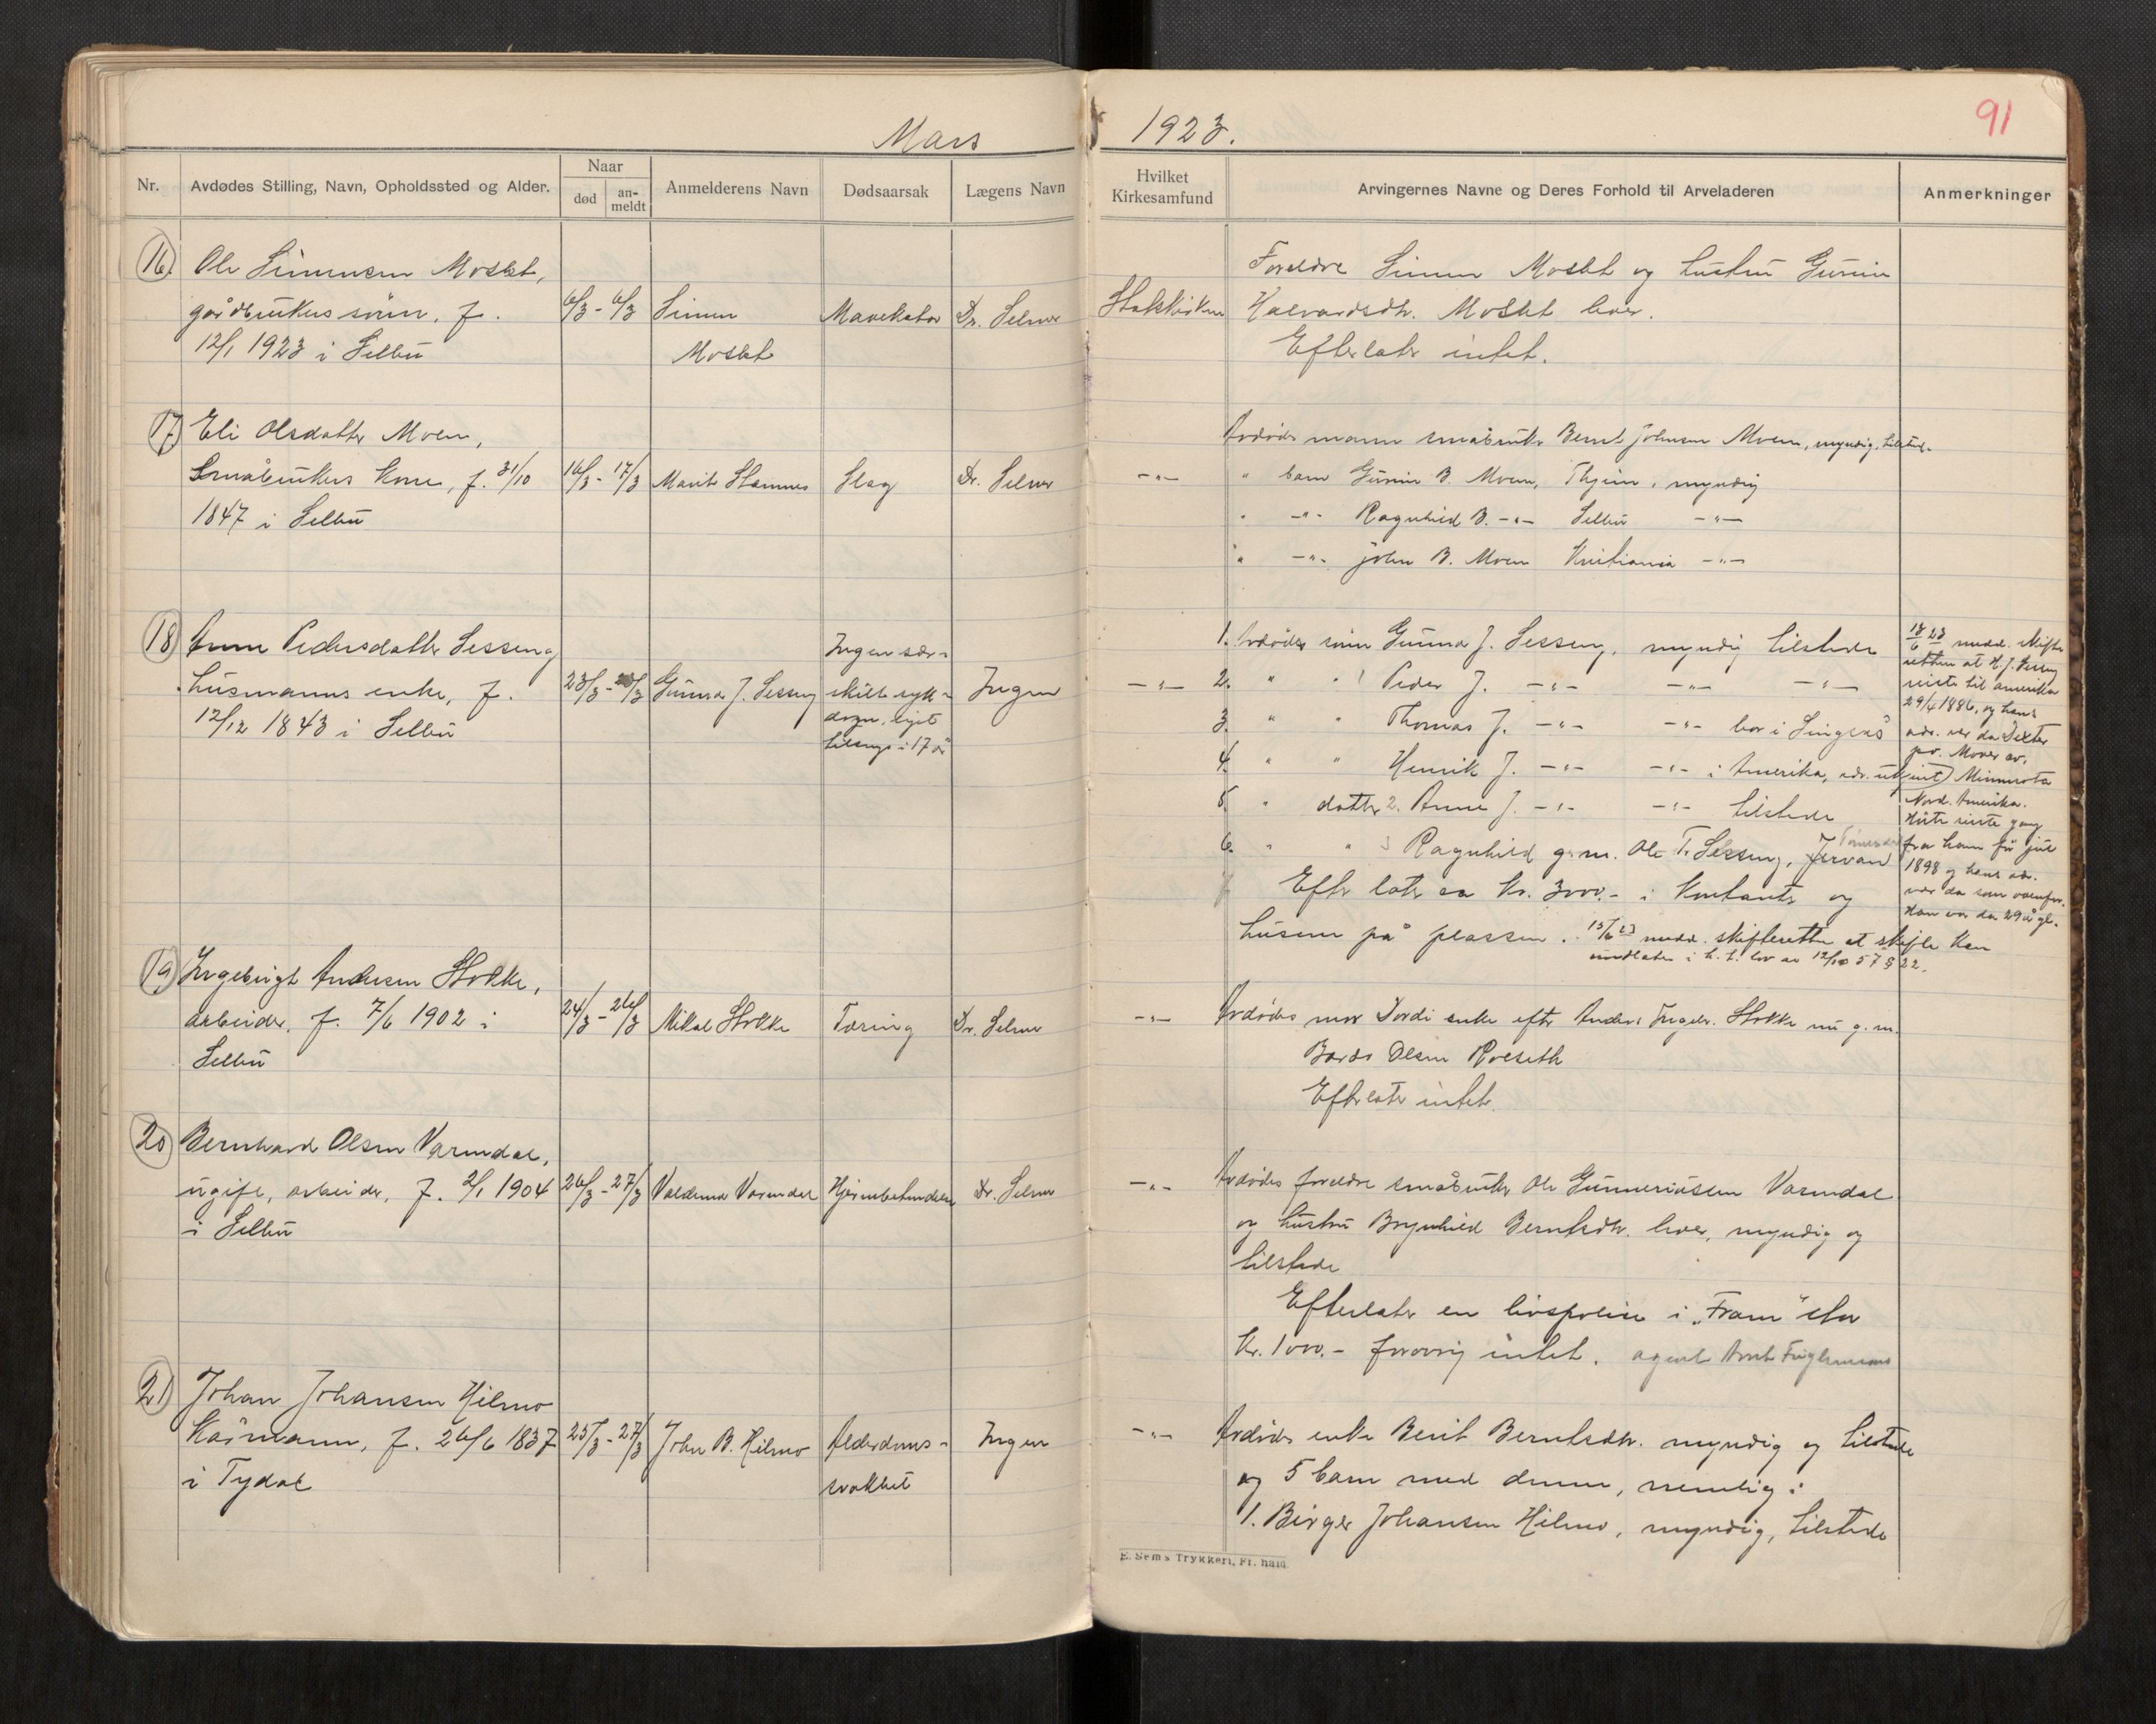 Mars
1923.
91
Nr.
Avdødes Stilling, Navn, Opholdssted og Alder.
Naar
død
an-
meldt
Anmelderens Navn
Dødsaarsak
Lægens Navn
Hvilket
Kirkesamfund
Arvingernes Navne og Deres Forhold til Arveladeren
Anmerkninger
16.
Ole Simensen Moslet,
gårdbrukers sönn, f.
12/1 1923 i Selbu
6/3 - 6/3
Simen
Moslet
Mavekatar
Dr. Selmer
Statskirken
Foreldre Simen Moslet og hustru Gunin
Halvardsdtr. Moslet lever.
Efterlater intet.
17)
Eli Olsdatter Moen,
Småbrukers kone, f. 31/10
1847 i Selbu
16/3 - 17/3
Marit Stamnes
Slag
Dr. Selmer
-"-
Avdødes mann småbruker Bernt Johnsen Moen, myndig, tilstede.
" barn Gunin B. Moen, Thjem, myndig
" -"- Ragnhild B. -"- Selbu -"-
" -"- John B. Moen Kristiania -"-
18
Anne Pedersdatter Sesseng
husmanns enke, f.
12/12 1843 i Selbu
23/3 - 23/3
Gunnar J. Sesseng
Ingen sær-
skilt syk-
dom, ligget
tilsengs i 17 år
Ingen
-"-
1. Avdødes sönn Gunnar J. Sesseng, myndig tilstede
2. " " Peder J. -"- -"- -"-
3. " " Thomas J. -"- -"- bor i Singsås
4. " " Henrik J. -"- -"- i Amerika, adr. ukjent
5. " datter 2. Anne J. -"- -"- tilstede
6. " " 3 Ragnhild g.m. Ole T. Sesseng, Jervan
7 Efterlater ca kr. 3000.- i kontanter og
husene på plassen. 15/6 23 medd. skifteretten at skifte kan
undlates i h.t. lov av 12/10 57 § 22.
18/6 23 medd. skifte
retten at H. J. Sesseng
reiste til amerika
29/4 1886, og hans
adr. var da Dexter
po. Mover co.
Minnesota
Nord. Amerika.
Hørte siste gang
fra ham før jul
1898 og hans adr.
var da som ovenfor.
Han var da 29 år gl.
19)
Ingebrigt Andersen Stokke,
arbeider, f. 7/6 1902 i
Selbu
24/3 - 26/3
Mikal Stokke
Tæring
Dr. Selmer
-"-
Avdødes mor Dordi enke efter Anders Ingebr. Stokke nu g.m.
Bårds Olsen Rolseth
Efterlater intet.
20
Bernhard Olsen Varmdal,
ugift, arbeider, f. 2/1 1904
i Selbu
26/3 - 27/3
Valdemar Varmdal
Hjernebetendelse
Dr. Selmer
-"-
Avdødes foreldre småbruker Ole Gunneriussen Varmdal
og hustru Brynhild Berntsdtr. lever, myndig og
tilstede
Efterlater en livspolise i "Fram" stor
kr. 1000.- forøvrig intet. agent Arnt Fuglemsmo
21)
Johan Johansen Hilmo
Kårmann, f. 26/6 1837
i Tydal
25/3 - 27/3
John B. Hilmo
Alderdoms-
svakhet
Ingen
-"-
Avdødes enke Berit Berntsdtr. myndig og tilstede
og 5 barn med denne, nemlig:
1. Birger Johansen Hilmo, myndig, tilstede
E. Sems Trykkeri, Fr.hald